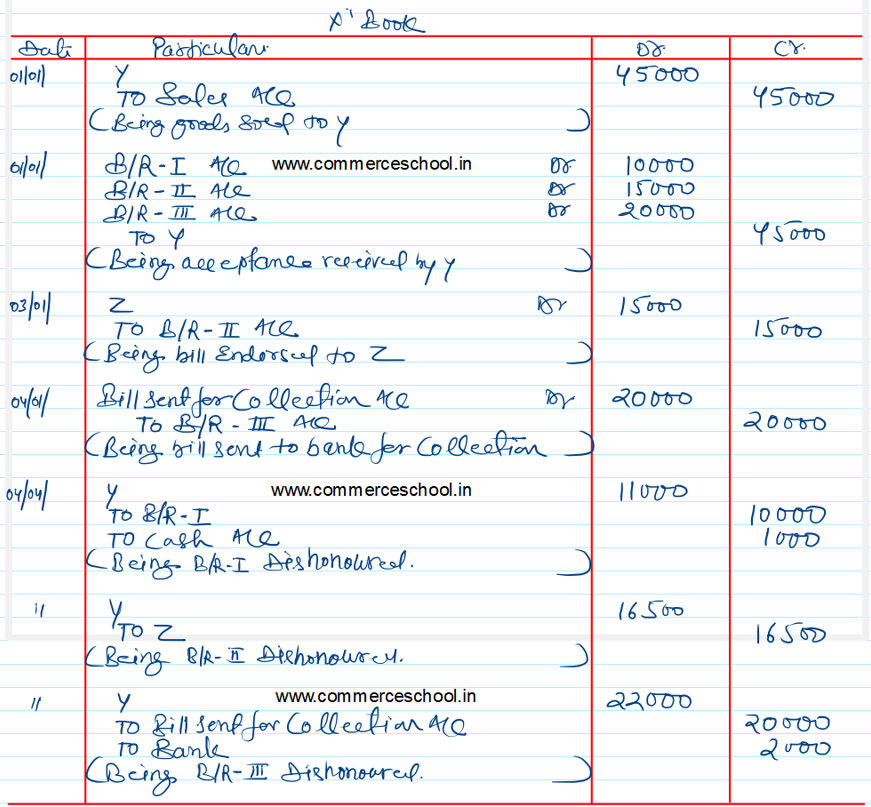 X' Book
Date Particulars Dr. Cr.
01/01/ Y 45000
To Sales A/c 45000
(Being goods sold to Y)
01/01/ B/R-I A/c www.commerceschool.in Dr 10000
B/R-II A/c Dr 15000
B/R-III A/c Dr 20000
To Y 45000
(Being acceptance received by Y)
03/01/ Z Dr 15000
To B/R-II A/c 15000
(Being bill Endorsed to Z)
04/01/ Bill sent for Collection A/c Dr 20000
To B/R-III A/c 20000
(Being bill sent to bank for Collection)
04/04/ Y www.commerceschool.in 11000
To B/R-I 10000
To Cash A/c 1000
(Being B/R-I Dishonoured.)
" Y 16500
To Z 16500
(Being B/R-II Dishonoured.)
" Y www.commerceschool.in 22000
To Bill sent for Collection A/c 20000
To Bank 2000
(Being B/R-III Dishonoured.)